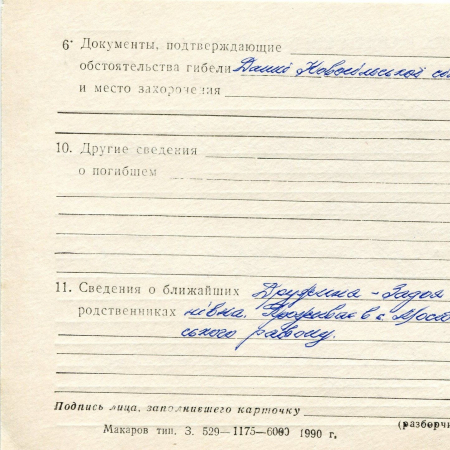 6. Документы, подтверждающие
обстоятельства гибели Данні Новосільської сіл
и место захоронения
10. Другие сведения
о погибшем
11. Сведения о ближайших Дружина - Задоя
родственниках нівна. Проживає в с
ського району.
Подпись лица, заполнившего карточку
(разборчи
Макаров тип. З. 529—1175—6000 1990 г.